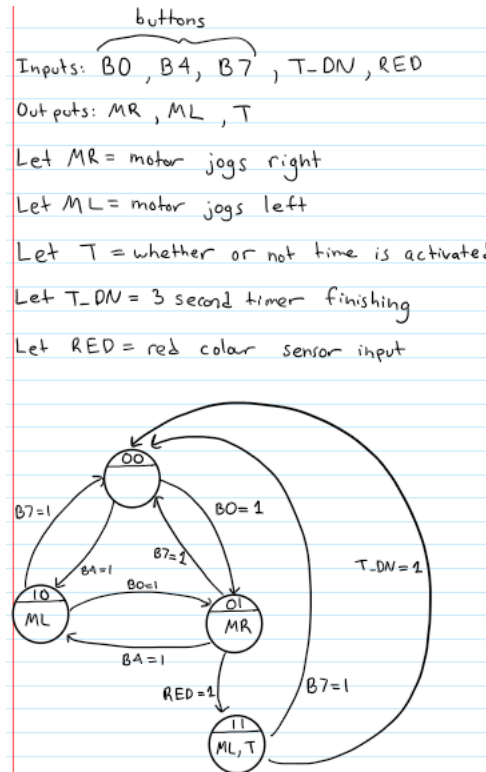 buttons
Inputs: B0, B4, B7, T_DN, RED
Outputs: MR, ML, T
Let MR = motor jogs right
Let ML = motor jogs left
Let T = whether or not time is activated
Let T_DN = 3 second timer finishing
Let RED = red colar sensor input
00
B7=1
B0=1
B4=1
B7=1
T_DN=1
10
B0=1
01
ML
MR
B4=1
RED=1
B7=1
11
ML, T